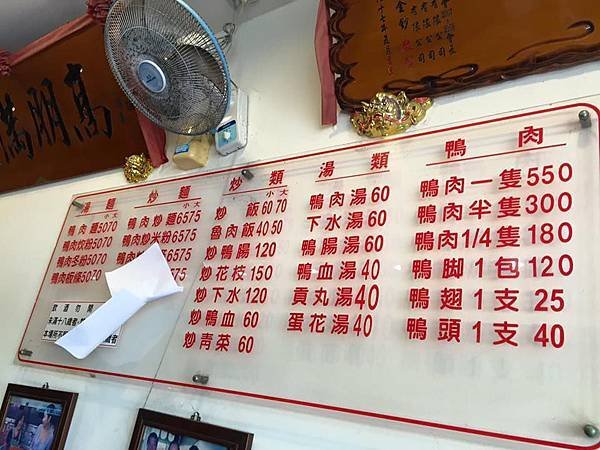 高朋滿
湯麵
小 大
鴨肉麵 50 70
鴨肉炊粉 50 70
鴨肉冬粉 50 70
鴨肉板條 50 70
炒麵
小 大
鴨肉炒麵 65 75
鴨肉炒米粉 65 75
鴨肉炒冬粉 65 75
炒類
小 大
炒飯 60 70
魯肉飯 40 50
炒鴨腸 120
炒花枝 150
炒下水 120
炒鴨血 60
炒青菜 60
湯類
鴨肉湯 60
下水湯 60
鴨腸湯 60
鴨血湯 40
貢丸湯 40
蛋花湯 40
鴨肉
鴨肉一隻 550
鴨肉半隻 300
鴨肉1/4隻 180
鴨腳1包 120
鴨翅1支 25
鴨頭1支 40
飲酒勿開
未滿十八歲者
本場所